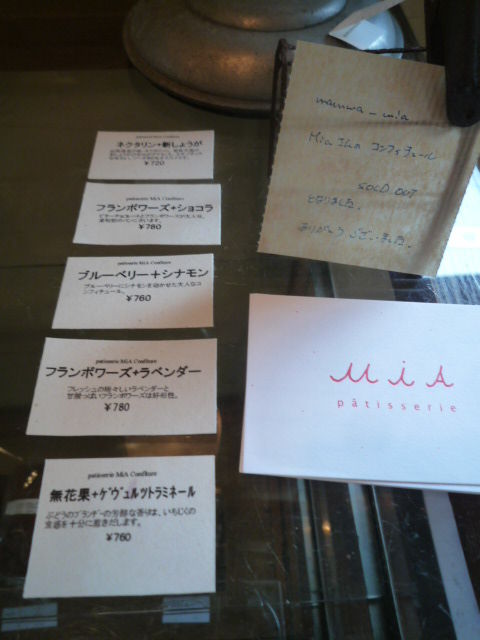 ネクタリン+新しょうが
¥720
patisserie MiA Confiture
フランボワーズ+ショコラ
¥780
patisserie MiA Confiture
ブルーベリー+シナモン
ブルーベリーにシナモンを効かせた大人なコ
ンフィチュール。
¥760
patisserie MiA Confiture
フランボワーズ+ラベンダー
フレッシュの瑞々しいラベンダーと
甘酸っぱいフランボワーズは好相性。
¥780
patisserie MiA Confiture
無花果+ゲヴュルツトラミネール
ぶどうのブランデーの芳醇な香りは、いちじくの
食感を十分に惹きだします。
¥760
コンフィチュール
SOLD OUT
となりました。
ありがとうございました。
MiA
pâtisserie